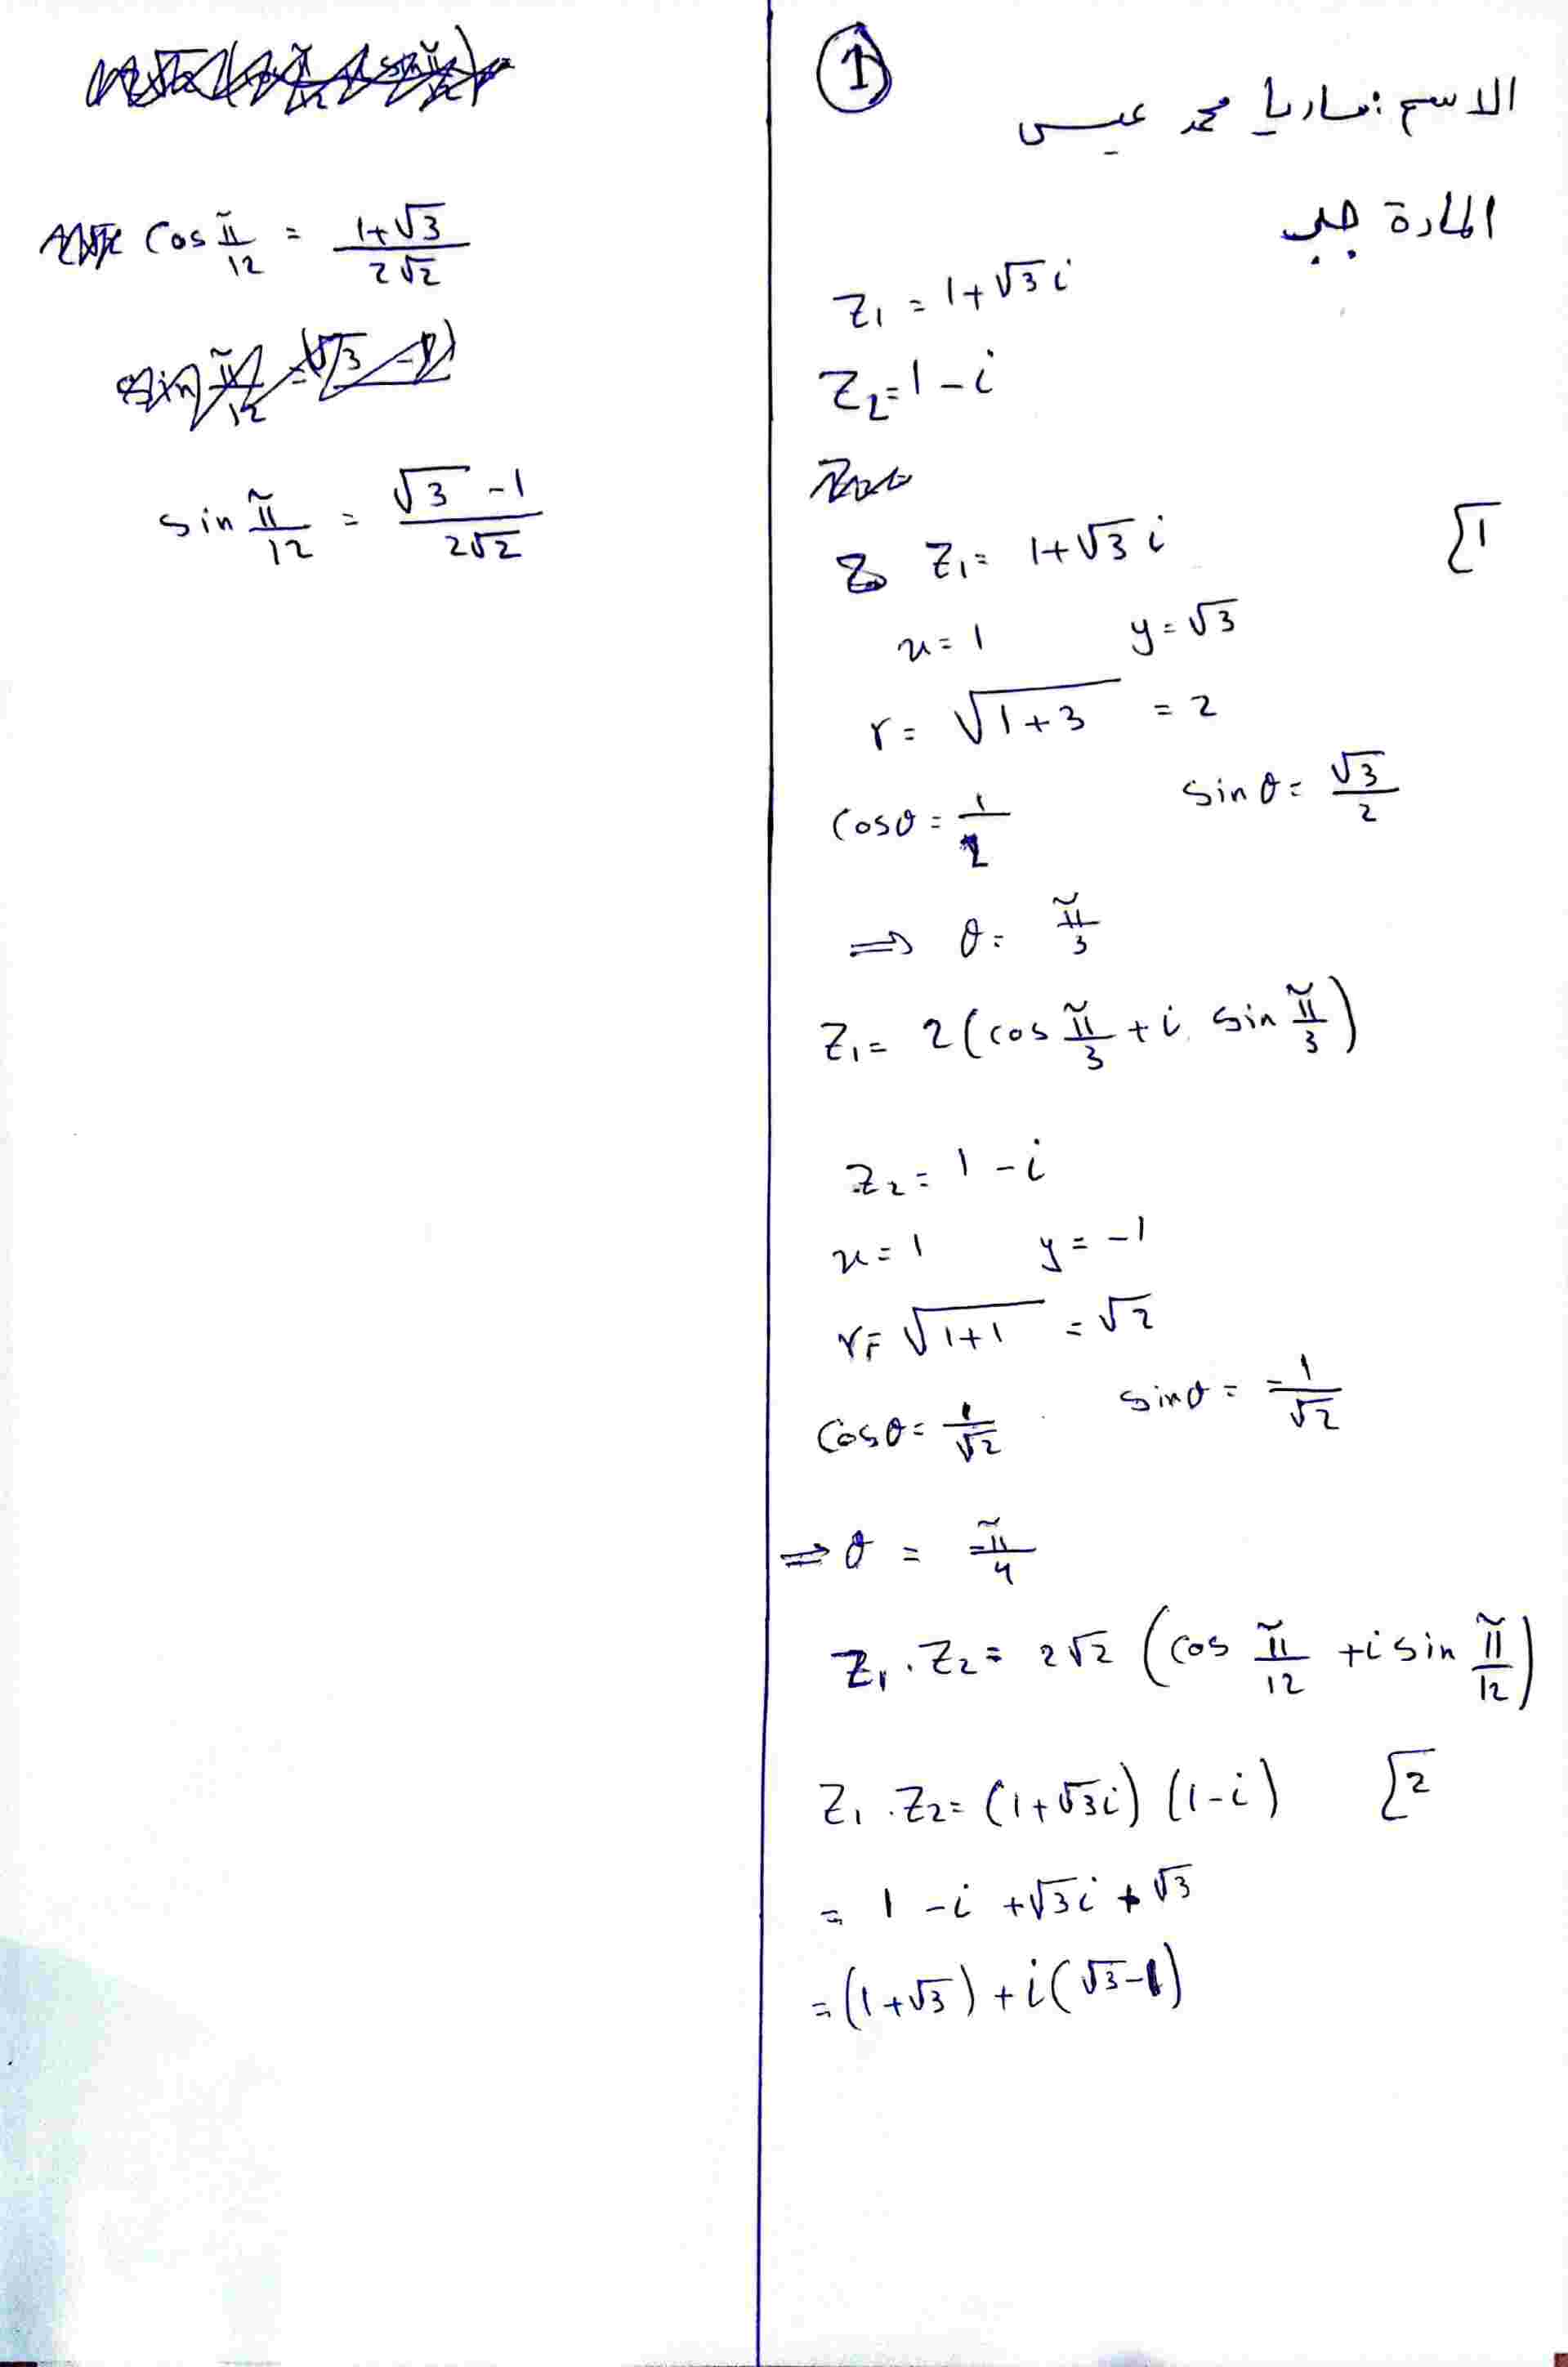 ①
الاسم: ماريا محمد عيسى
المادة جبر
Z₁ = 1+√3 i
Z₂ = 1 - i
Z₁ = 1+√3 i [1
x = 1 y = √3
r = √(1+3) = 2
cosθ = 1/2 sinθ = √3/2
⇒ θ = π/3
Z₁ = 2(cos π/3 + i sin π/3)
Z₂ = 1 - i
x = 1 y = -1
r = √(1+1) = √2
cosθ = 1/√2 sinθ = -1/√2
⇒ θ = -π/4
Z₁ . Z₂ = 2√2 (cos π/12 + i sin π/12)
Z₁ . Z₂ = (1+√3i) (1-i) [2
= 1 - i + √3i + √3
= (1+√3) + i(√3-1)
cos π/12 = (1+√3)/(2√2)
sin π/12 = (√3 - 1)/(2√2)